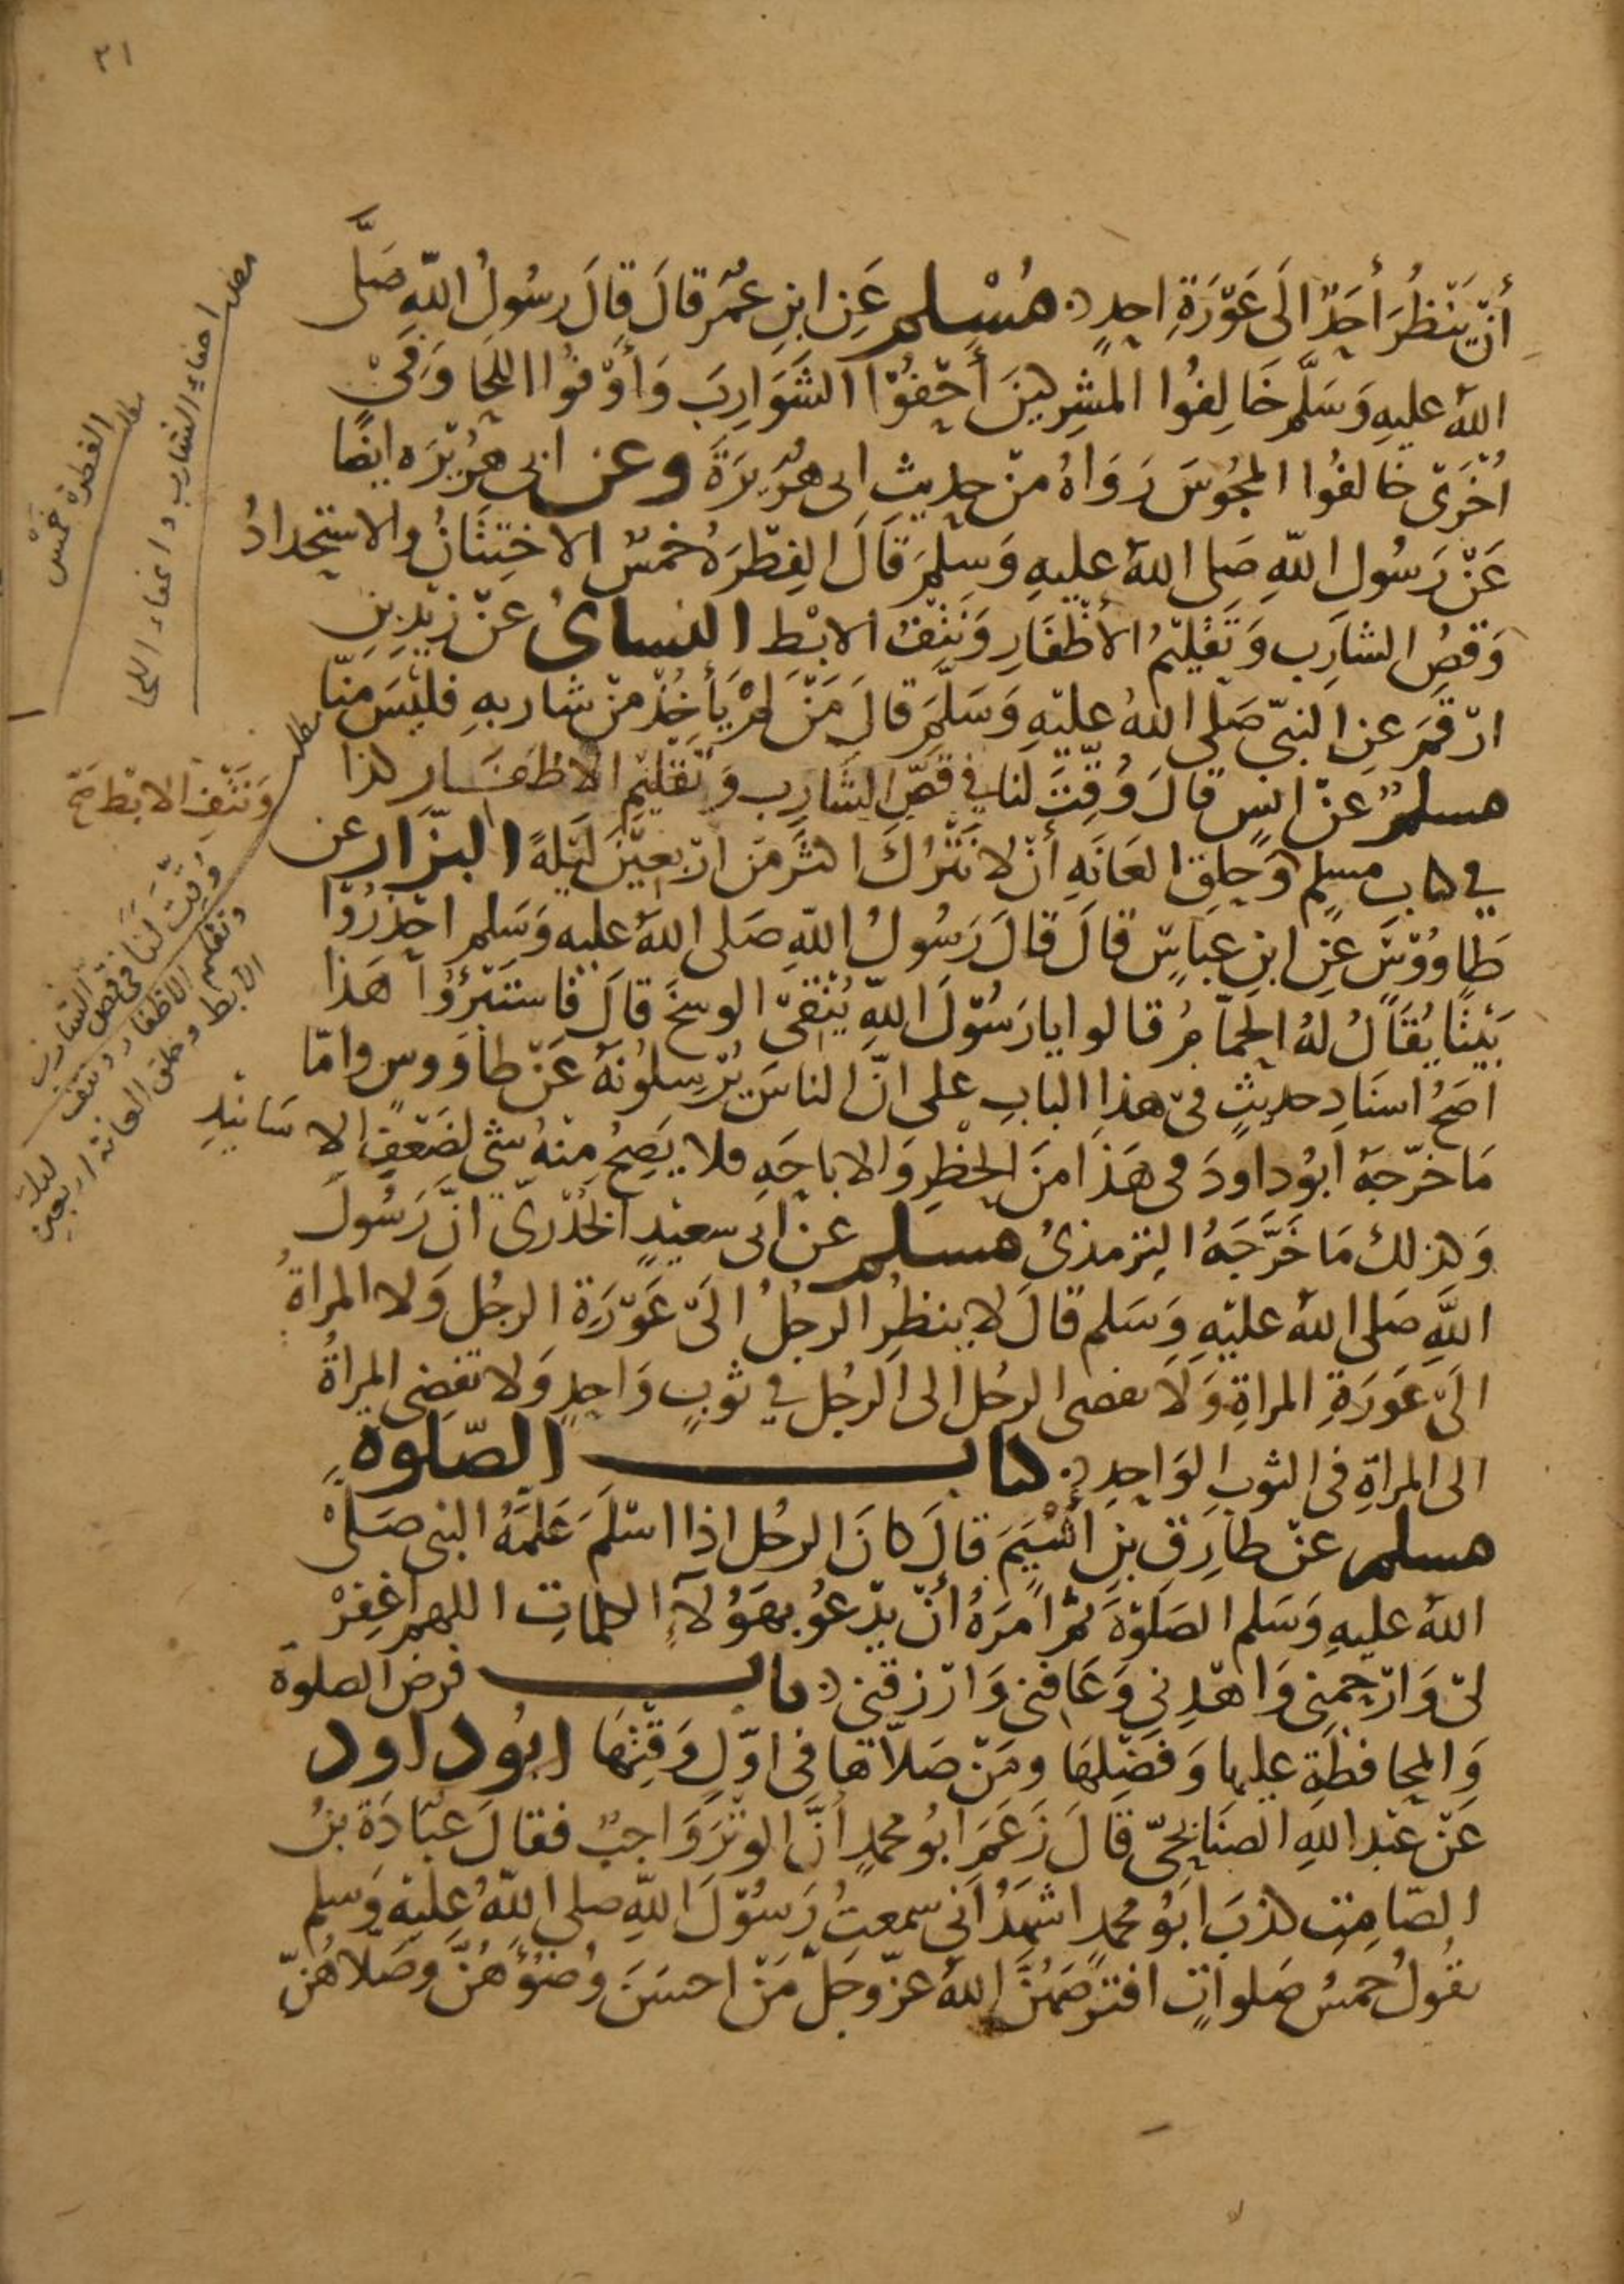 ٣١
أنْ يَنْظُرَ أحَدٌ الَى عَوْرَةِ احدٍ مُسْلم عَنِ ابنِ عُمَر قالَ قالَ رسُولُ اللّهِ صَلَّى
اللهُ عليهِ وَسَلَّم خَالِفُوا المشرِكينَ أحْفُوْا الشَوَارِبَ وَأوْفُوا اللِحَا وَفِىْ
اُخْرَى خالفُوا المجُوسَ رَوَاهُ منْ حديثِ ابى هُرَيرَةَ وعن ابى هُرَيْرَه ايضًا
عَنْ رَسُولِ اللّهِ صَلى اللهُ عليهِ وَسلَّمَ قَالَ الفِطْرَهُ خمسٌ الاختِتَانُ والاستحدادُ
وَقصُ الشارِب وَتَقْلِيْمُ الأظْفَارِ وَنَتْفُ الابْط النساىُ عَنْ زيْدِ بنِ
ارْقمَ عنِ النبىّ صَلى اللهُ عليْهِ وَسَلَّمَ قالَ مَنْ لمْ يَأخُذْ منْ شاربهِ فليْسَ منّا
مسلمٌ عنْ انسٍ قالَ وُقِّتَ لنا فى قصِّ الشارِبِ وَتَقْليْمِ الاظفَار كذا
فى كتاب مسلم وَحلقِ العَانَهِ أنْ لا نَتْرُكَ اكثرَ منَ ارْبعِيْنَ لَيْلهً البزّار عن
طَاووُسَ عَنِ ابنِ عبَاسٍ قالَ قالَ رَسُولُ اللّهِ صَلى اللهُ عليه وَسَلم احذرُوْا
بَيْتًا يُقَالُ لهُ الحمَّامُ قالوا يا رَسُوْلَ اللّهِ يُنَقىّ الوسخَ قالَ فاستَتِرُوْا هَذا
اصَحُ اسنَادِ حديثٍ فىْ هذا البابِ على انَّ الناسَ يُرْسِلُونهُ عَنْ طاوَوس وامّا
مَا خرّجهُ ابُو داودَ فى هَذا منَ الحظرِ وَالاباحَهِ فلا يَصِحُ مِنْهُ شىٌ لضَعْفِ الاسَانيْدِ
وَكذلكَ مَا خَرَّجَهُ التِرمذىُ مسلم عنْ ابى سعيْدٍ الخُدْرىّ انَّ رَسُولَ
اللّهِ صَلى اللهُ عليْهِ وَسَلم قالَ لا ينظرِ الرجُلُ الَىْ عَوْرَةِ الرجُلِ وَلا المراةُ
الَىْ عَوَرَةِ المراةِ وَلَا يفضى الرجُل الى الرجُلِ في ثوبٍ وَاحدٍ وَلا تفضى المراةُ
الى المراةِ فى الثوبِ الوَاحدِ كتاب الصّلوة
مسلم عنْ طارِق بنِ أشْيَمَ قالَ كانَ الرجُل اذا اسْلَمَ عَلمَّهُ النبى صَلىْ
اللهُ عليهِ وَسَلم الصَلوْةَ ثمَّ امرَهُ أنْ يدْعُو بهَؤُلآءِ الكلماتِ اللهم اغفِرْ
لىْ وَارْحمنِى وَاهْدِني وَعَافنى وَارْزقنى باب فرض الصلوة
وَالمحافظَةِ عليها وَفضْلهَا ومَنْ صَلاّها فى اوّلِ وَقتِهَا ابُو داود
عَنْ عَبْدِ اللّهِ الصنَابحىّ قالَ زَعَمَ ابُو محمدٍ أنَّ الوتْرَ وَاجبٌ فقالَ عبَادَةُ بنُ
الصّامِتِ كذبَ ابُو محمدٍ اشهدُ أنى سمعتُ رَسُوْلَ اللّهِ صلى اللّهُ عليْهِ وَسلم
يقُولُ خمسُ صَلواتٍ افترضَهُنَّ اللهُ عزّ وجلّ مَنْ احسَنَ وُضؤَهُنّ وصَلاهُنّ
مطلب احفاء الشارب واعفاء اللحا
مطلب الفطرة خَمْسٌ
وَنَتْفِ الابْط صَحّ
مطلب وُقِّتَ لَنَا فى قص الشارب
وتقليم الاظفار ونتف
الابط وحلق العانة اربعين
ليلة